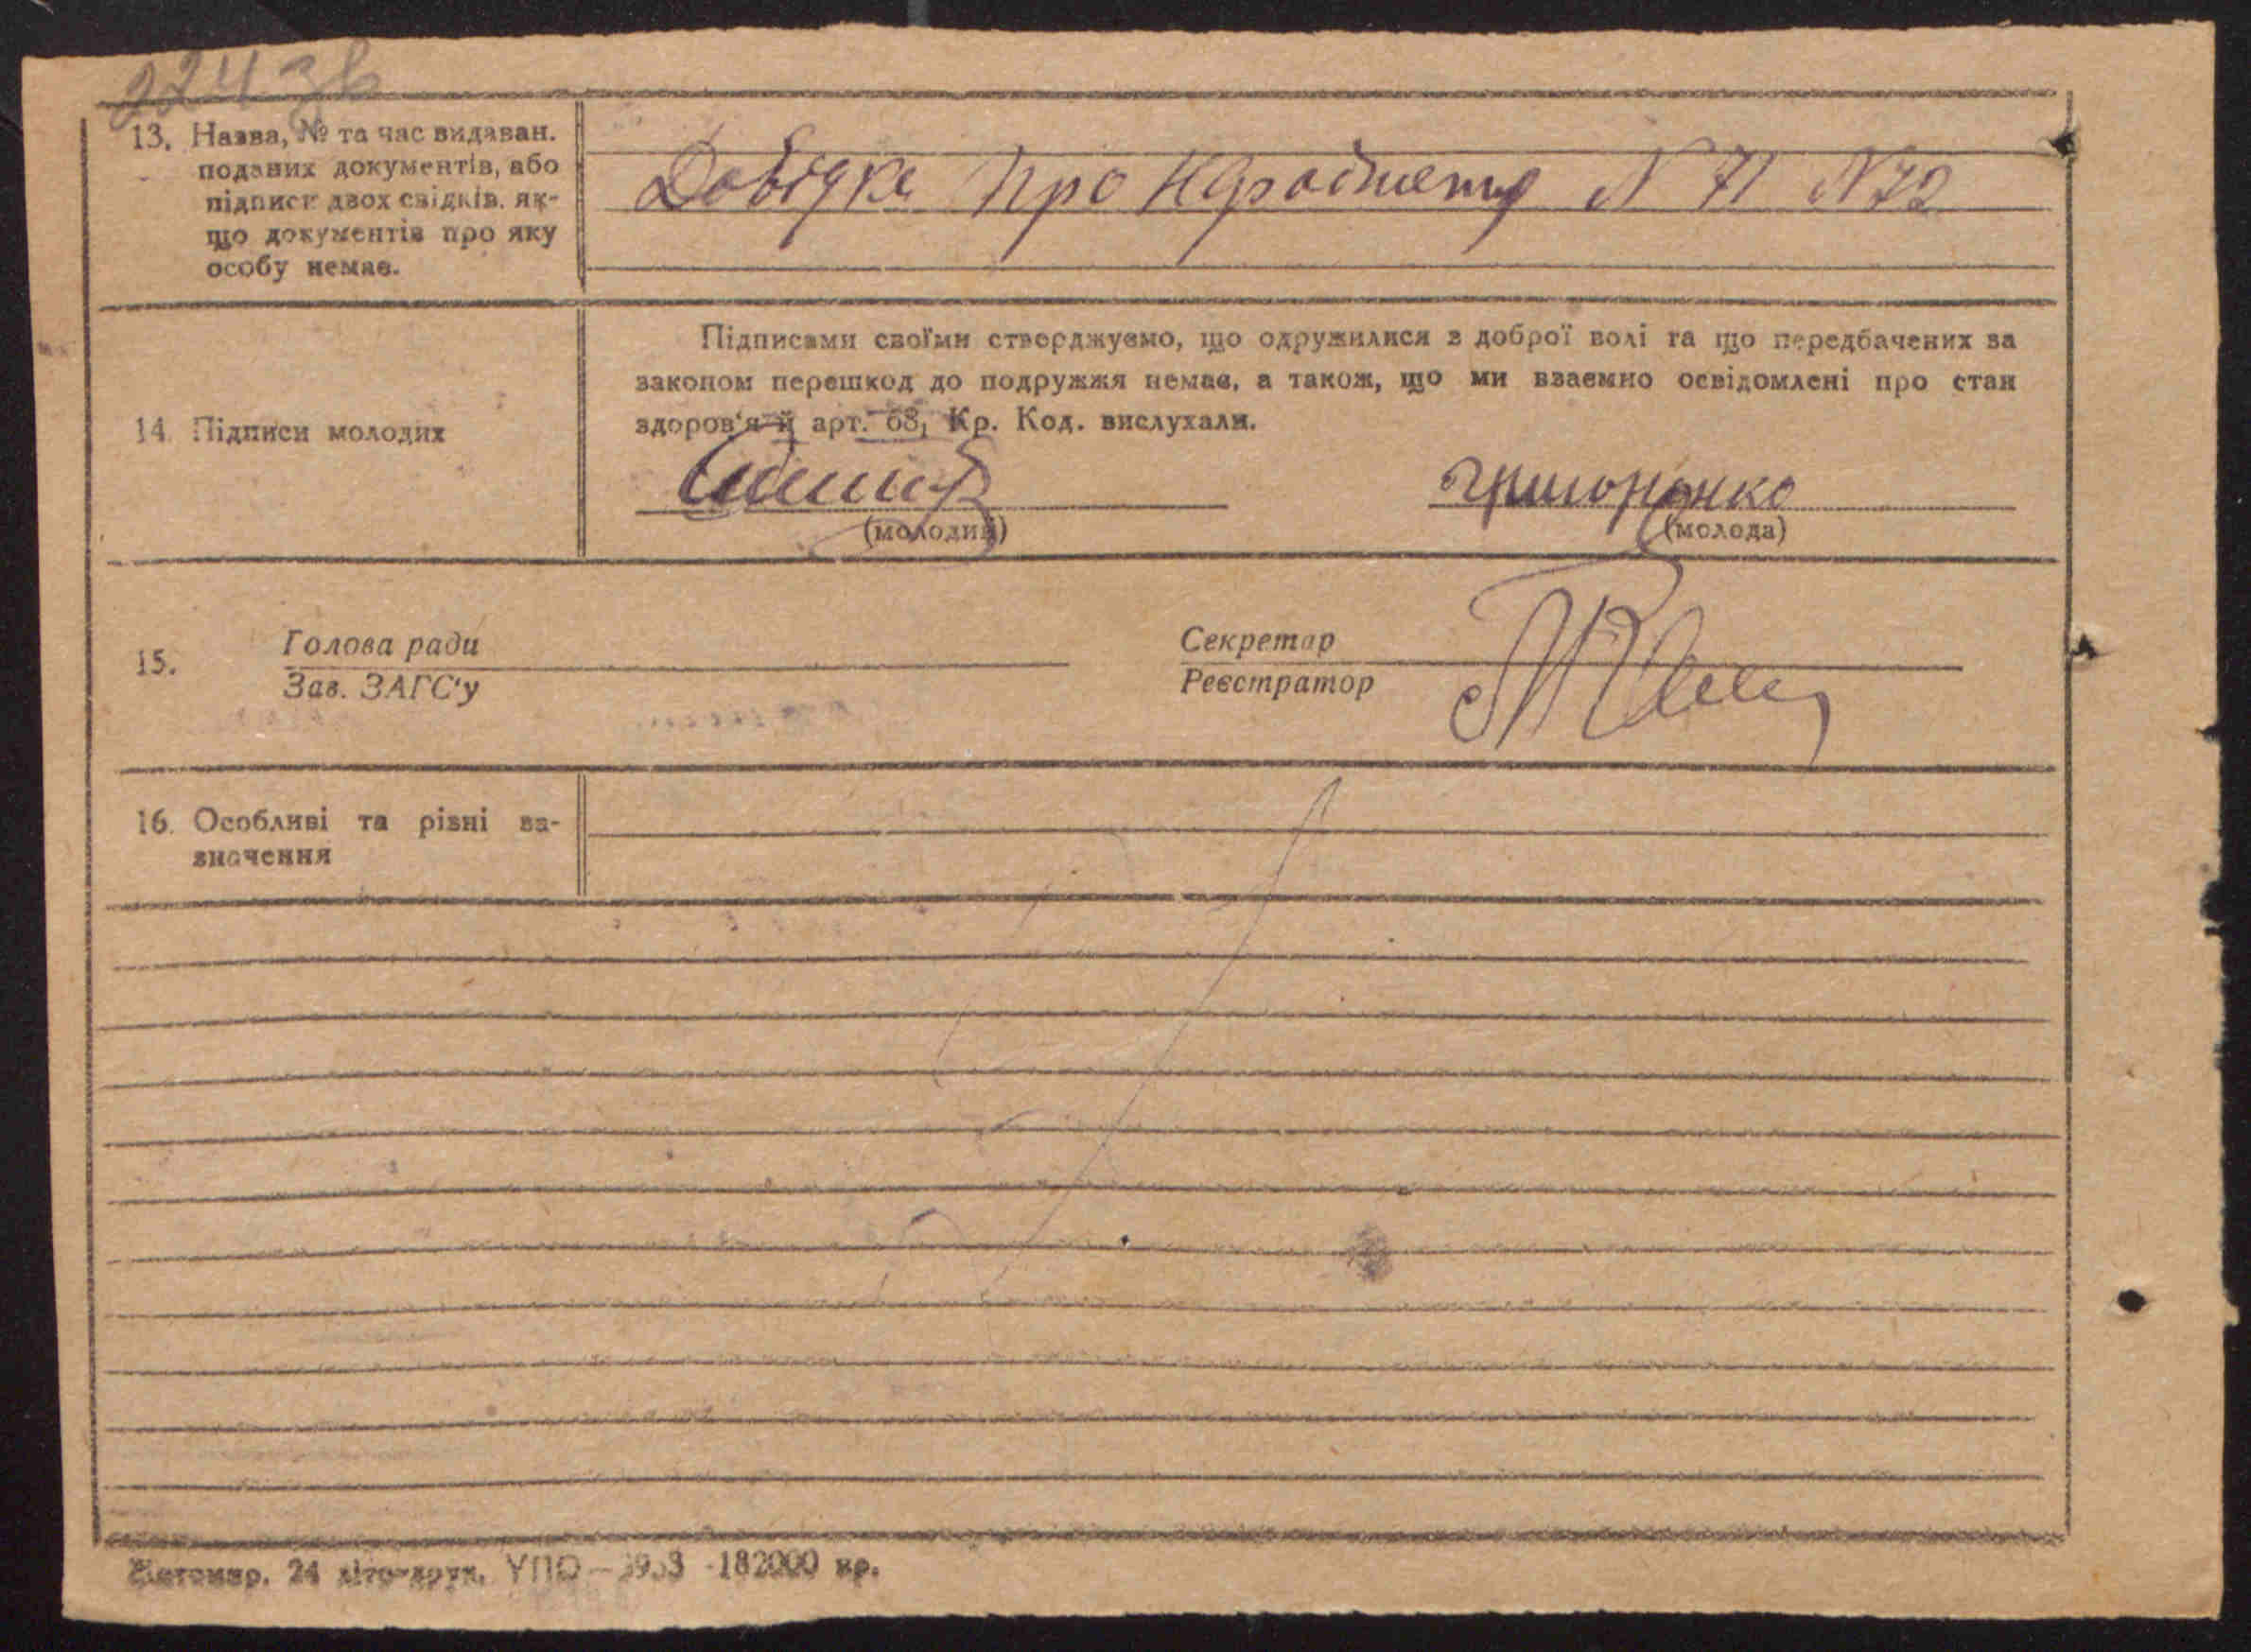 224 зв
13. Назва, № та час видаван.
поданих документів, або
підписи двох свідків, як-
що документів про яку
особу немає.
Довідка про народження N 71 N 72
14. Підписи молодих
Підписами своїми стверджуємо, що одружилися з доброї волі та що передбачених за
законом перешкод до подружжя немає, а також, що ми взаємно освідомлені про стан
здоров'я й арт. 68, Кр. Код. вислухали.
Григоренко
(молодий)
(молода)
15.
Голова ради
Зав. ЗАГС'у
Секретар
Реєстратор
16. Особливі та різні за-
значення
Житомир. 24 літо-друк. УПО — 3953 - 182000 пр.